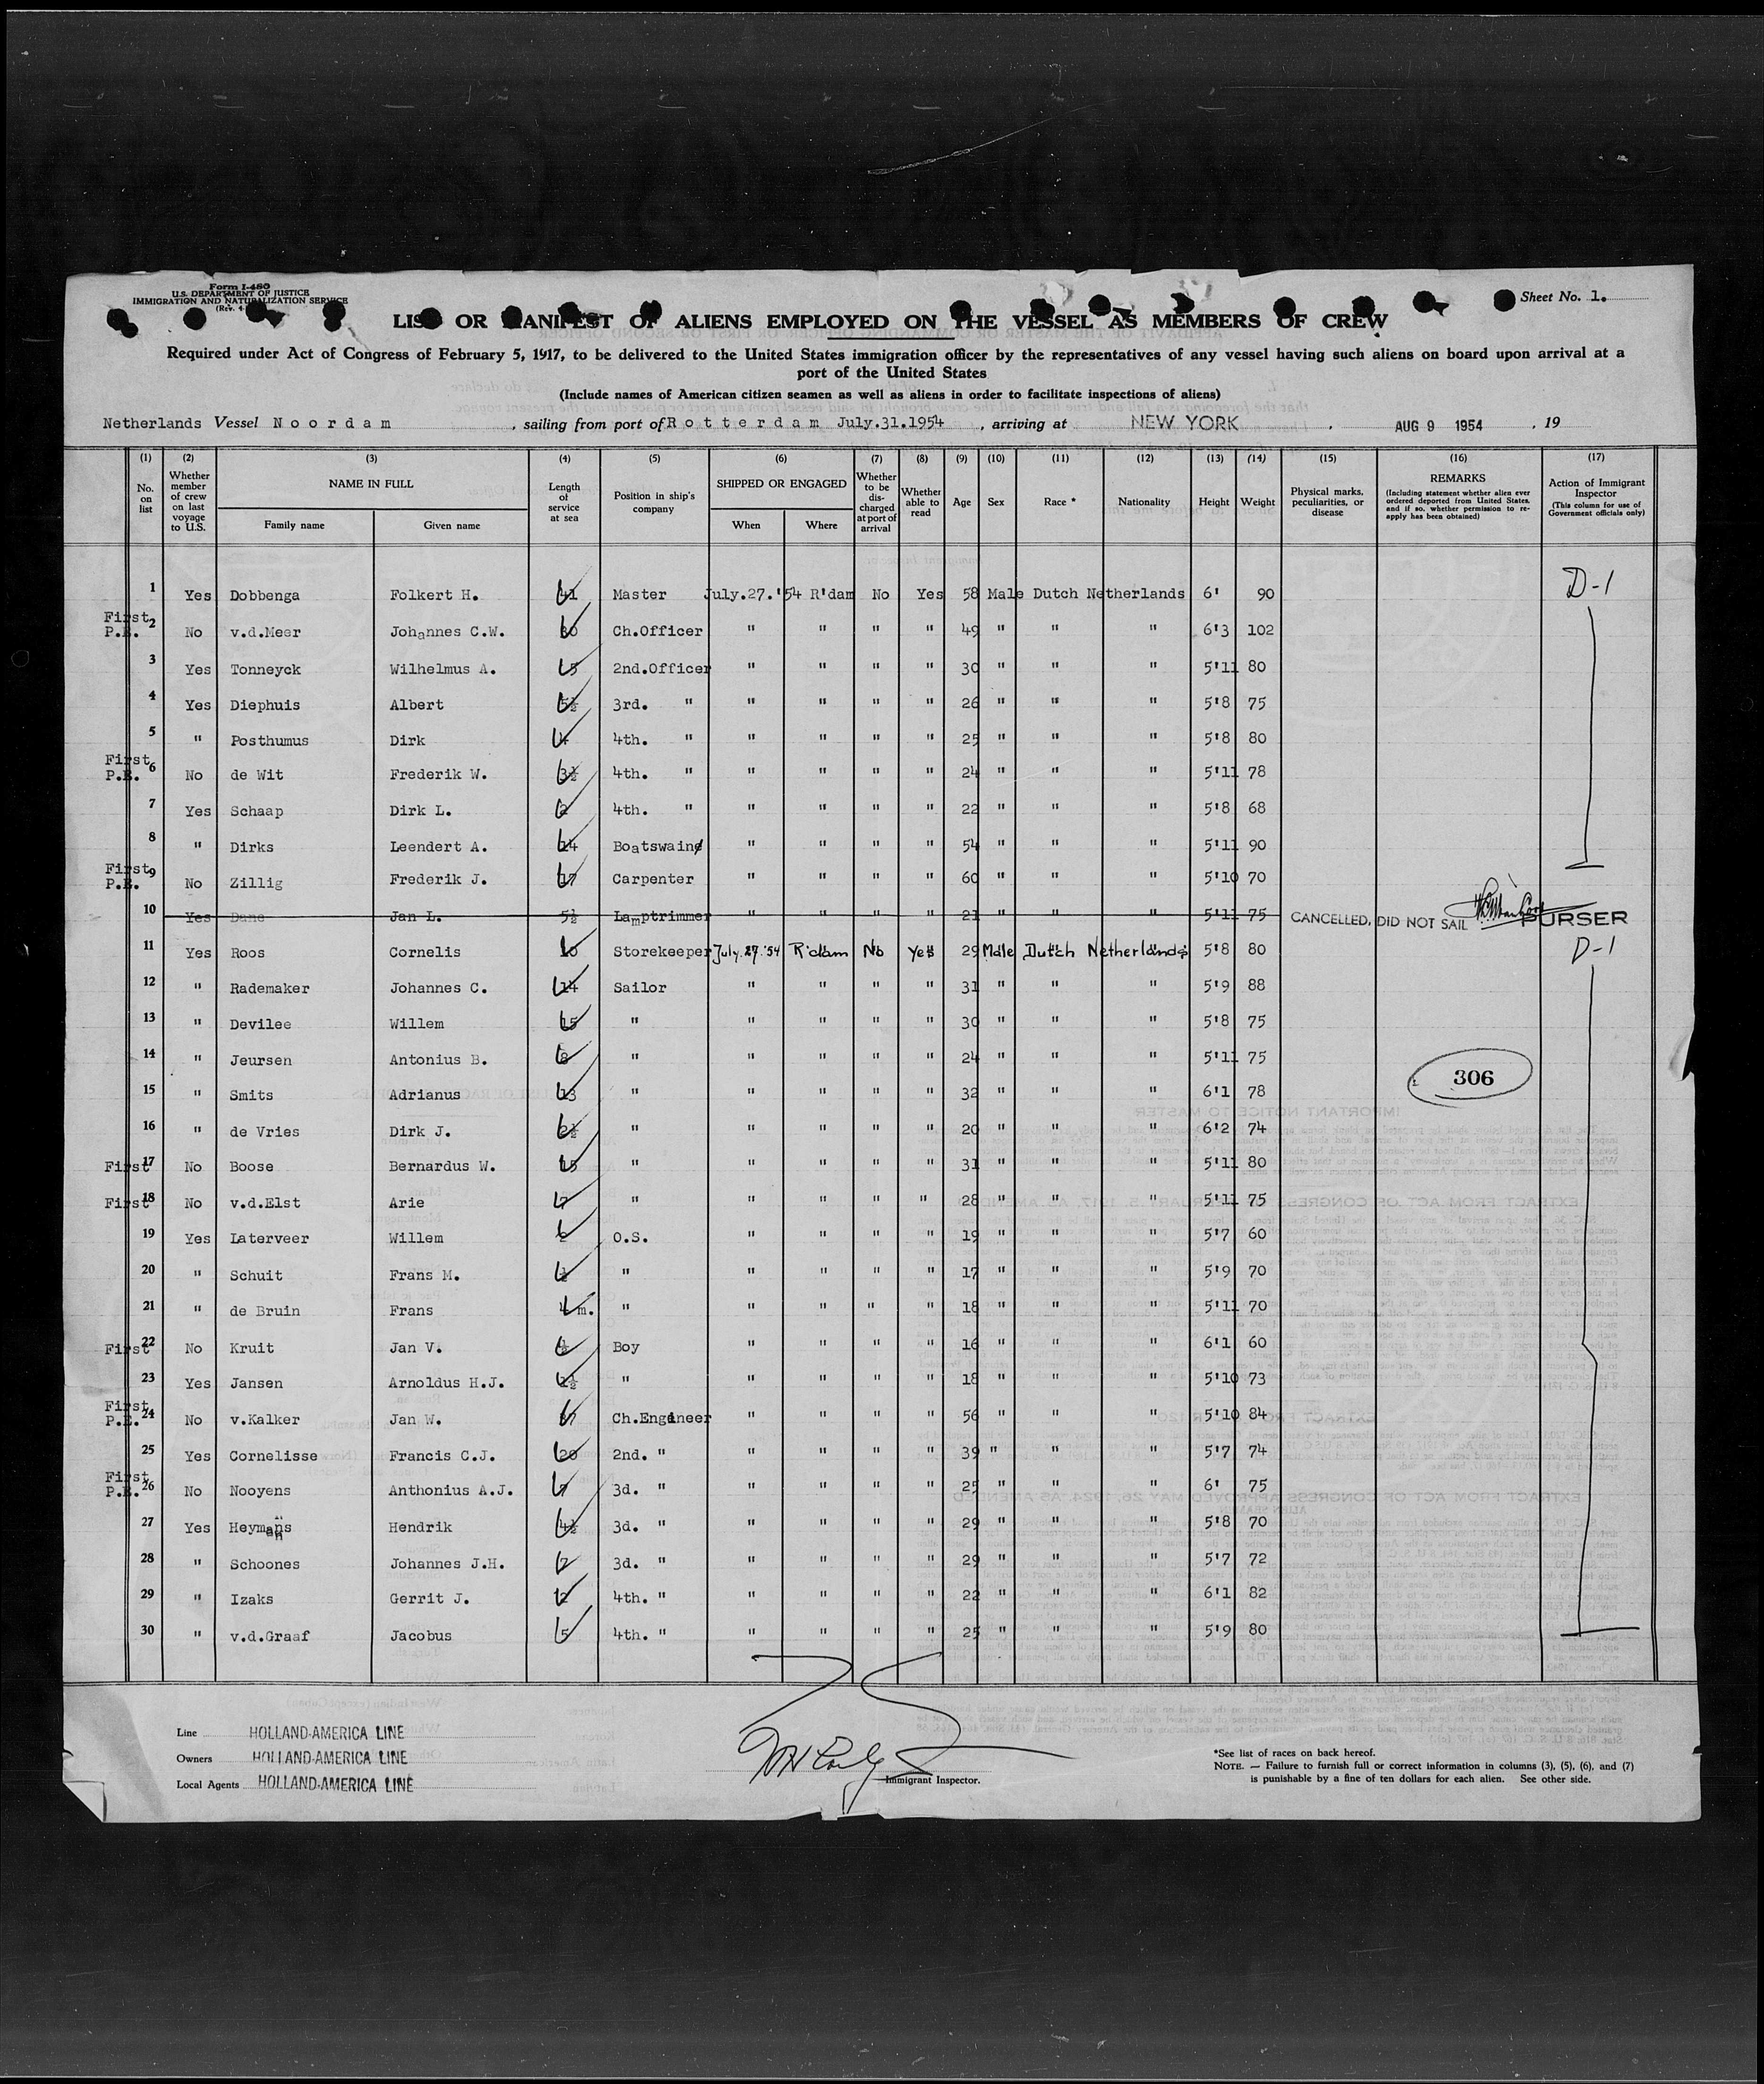 Form I-480
U.S. DEPARTMENT OF JUSTICE
IMMIGRATION AND NATURALIZATION SERVICE
Sheet No. 1.
LIST OR MANIFEST OF ALIENS EMPLOYED ON THE VESSEL AS MEMBERS OF CREW
Required under Act of Congress of February 5, 1917, to be delivered to the United States immigration officer by the representatives of any vessel having such aliens on board upon arrival at a
port of the United States
(Include names of American citizen seamen as well as aliens in order to facilitate inspections of aliens)
Netherlands Vessel Noordam, sailing from port of Rotterdam July.31.1954, arriving at NEW YORK, AUG 9 1954, 19
(1) No. on list (2) Whether member of crew on last voyage to U.S. (3) NAME IN FULL Family name Given name (4) Length of service at sea (5) Position in ship's company (6) SHIPPED OR ENGAGED When Where (7) Whether to be discharged at port of arrival (8) Whether able to read (9) Age (10) Sex (11) Race * (12) Nationality (13) Height (14) Weight (15) Physical marks, peculiarities, or disease (16) REMARKS (Including statement whether alien ever ordered deported from United States, and if so, whether permission to re-apply has been obtained) (17) Action of Immigrant Inspector (This column for use of Government officials only)
1 Yes Dobbenga Folkert H. 41 Master July.27.'54 R'dam No Yes 58 Male Dutch Netherlands 6' 90 D-1
First P.E. 2 No v.d.Meer Johannes C.W. 30 Ch.Officer " " " " 49 " " " 6'3 102
3 Yes Tonneyck Wilhelmus A. 5 2nd.Officer " " " " 30 " " " 5'11 80
4 Yes Diephuis Albert 5½ 3rd. " " " " " 26 " " " 5'8 75
5 " Posthumus Dirk 4 4th. " " " " " 25 " " " 5'8 80
First P.E. 6 No de Wit Frederik W. 3½ 4th. " " " " " 24 " " " 5'11 78
7 Yes Schaap Dirk L. 2 4th. " " " " " 22 " " " 5'8 68
8 " Dirks Leendert A. 24 Boatswain " " " " 54 " " " 5'11 90
First P.E. 9 No Zillig Frederik J. 17 Carpenter " " " " 60 " " " 5'10 70
10 Yes Dane Jan L. 5½ Lamptrimmer " " " " 21 " " " 5'11 75 CANCELLED, DID NOT SAIL PURSER
11 Yes Roos Cornelis 10 Storekeeper July.27.'54 R'dam No Yes 29 Male Dutch Netherlands 5'8 80 D-1
12 " Rademaker Johannes C. 14 Sailor " " " " 31 " " " 5'9 88
13 " Devilee Willem 15 " " " " " 30 " " " 5'8 75
14 " Jeursen Antonius B. 8 " " " " " 24 " " " 5'11 75
15 " Smits Adrianus 13 " " " " " 32 " " " 6'1 78 306
16 " de Vries Dirk J. 2½ " " " " " 20 " " " 6'2 74
First 17 No Boose Bernardus W. 15 " " " " " 31 " " " 5'11 80
First 18 No v.d.Elst Arie 7 " " " " " 28 " " " 5'11 75
19 Yes Laterveer Willem 2 O.S. " " " " 19 " " " 5'7 60
20 " Schuit Frans M. ½ " " " " " 17 " " " 5'9 70
21 " de Bruin Frans 4 m. " " " " " 18 " " " 5'11 70
First 22 No Kruit Jan V. ½ Boy " " " " 16 " " " 6'1 60
23 Yes Jansen Arnoldus H.J. 1½ " " " " " 18 " " " 5'10 73
First P.E. 24 No v.Kalker Jan W. Ch.Engineer " " " " 56 " " " 5'10 84
25 Yes Cornelisse Francis C.J. 20 2nd. " " " " " 39 " " " 5'7 74
First P.E. 26 No Nooyens Anthonius A.J. 7 3d. " " " " " 25 " " " 6' 75
27 Yes Heymans Hendrik 4½ 3d. " " " " " 29 " " " 5'8 70
28 " Schoones Johannes J.H. 2 3d. " " " " " 29 " " " 5'7 72
29 " Izaks Gerrit J. 2 4th. " " " " " 22 " " " 6'1 82
30 " v.d.Graaf Jacobus 5 4th. " " " " " 25 " " " 5'9 80
Line HOLLAND-AMERICA LINE
Owners HOLLAND-AMERICA LINE
Local Agents HOLLAND-AMERICA LINE
Immigrant Inspector.
*See list of races on back hereof.
NOTE. — Failure to furnish full or correct information in columns (3), (5), (6), and (7)
is punishable by a fine of ten dollars for each alien. See other side.